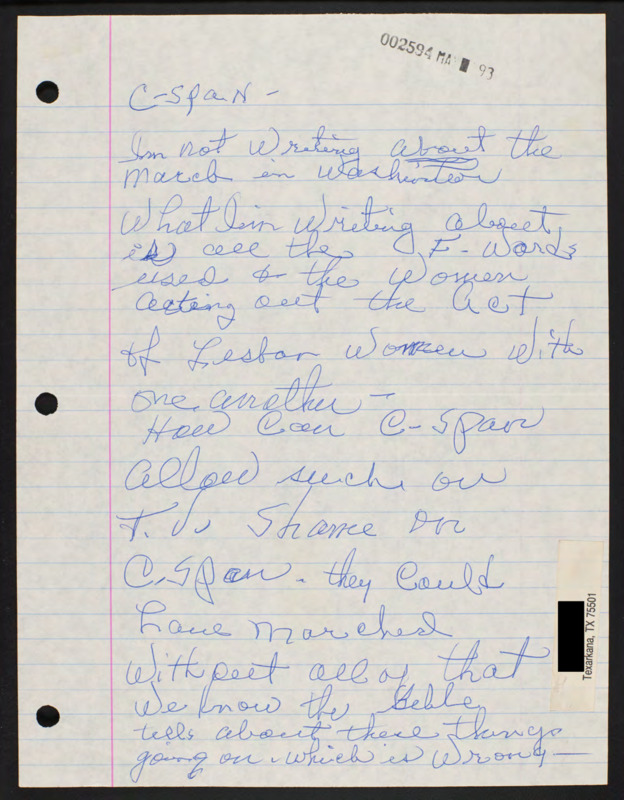 002594 MA 93
C-SPAN-
Im not Writing about the
March in Washinton
What Iim Writing about,
is all the F-Words
used & the Women
acting out the act
of Lesban Women With
one another -
How Can C-Span
allow such on
T.V. Shame on
C.Span. they Could
have Marched
Without all of that
We Know the Bible
tells about these things
going on. which is Wrong-
Texarkana, TX 75501